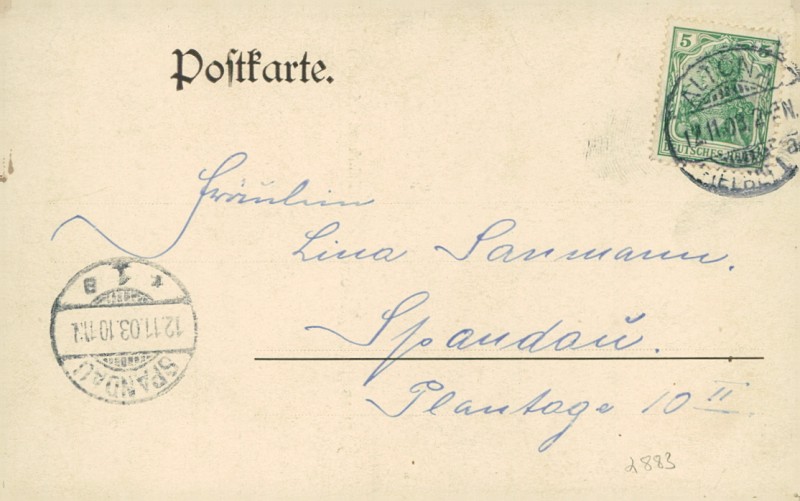 Postkarte.
5 5
DEUTSCHES REICH
ALTONA
12.11.03 2-3N.
(ELBE) 1
Fräulein
Lina Sanmann.
Spandau.
Plantage 10 II
SPANDAU
12.11.03.10-11
* 1 B
2883